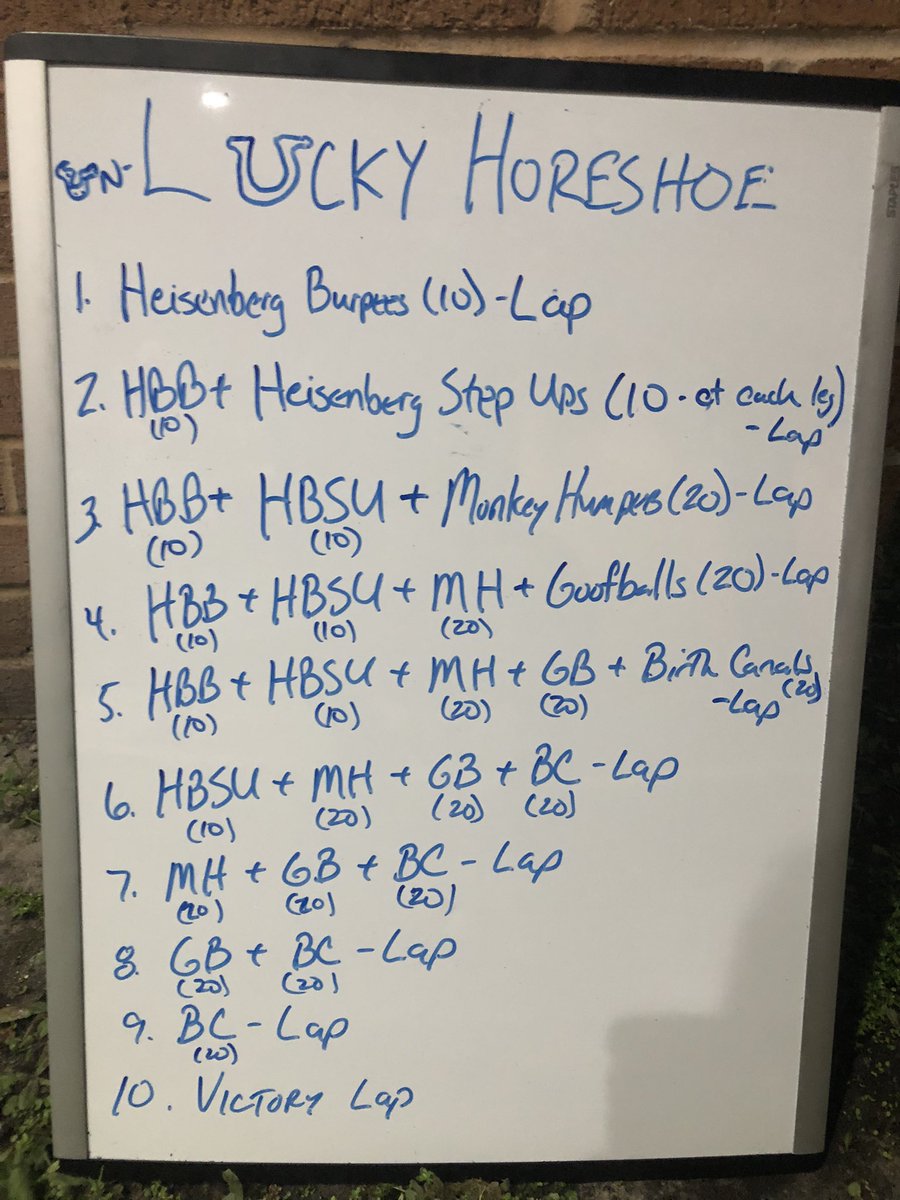 UN-LUCKY HORESHOE
1. Heisenberg Burpees (10) - Lap
2. HBB + Heisenberg Step Ups (10 - at each leg)
(10) - Lap
3. HBB + HBSU + Monkey Humpers (20) - Lap
(10) (10)
4. HBB + HBSU + MH + Goofballs (20) - Lap
(10) (10) (20)
5. HBB + HBSU + MH + GB + Birth Canals (20)
(10) (10) (20) (20) - Lap
6. HBSU + MH + GB + BC - Lap
(10) (20) (20) (20)
7. MH + GB + BC - Lap
(20) (20) (20)
8. GB + BC - Lap
(20) (20)
9. BC - Lap
(20)
10. VICTORY Lap